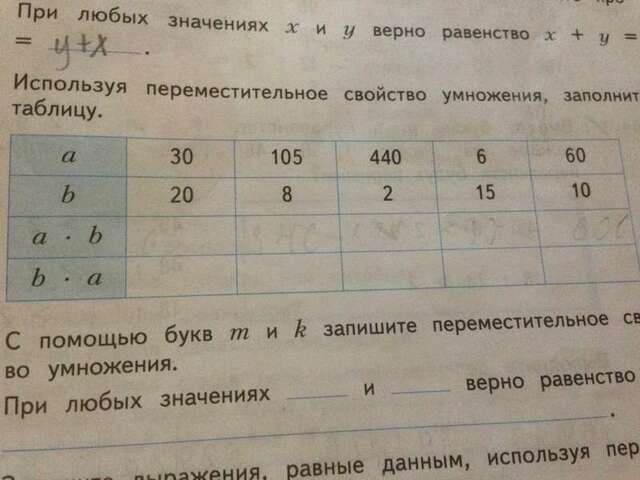 При любых значениях x и y верно равенство x + y =
= y+x .
Используя переместительное свойство умножения, заполнит
таблицу.
a 30 105 440 6 60
b 20 8 2 15 10
a · b
b · a
С помощью букв m и k запишите переместительное св
во умножения.
При любых значениях ____ и ____ верно равенство
____.
выражения, равные данным, используя пер